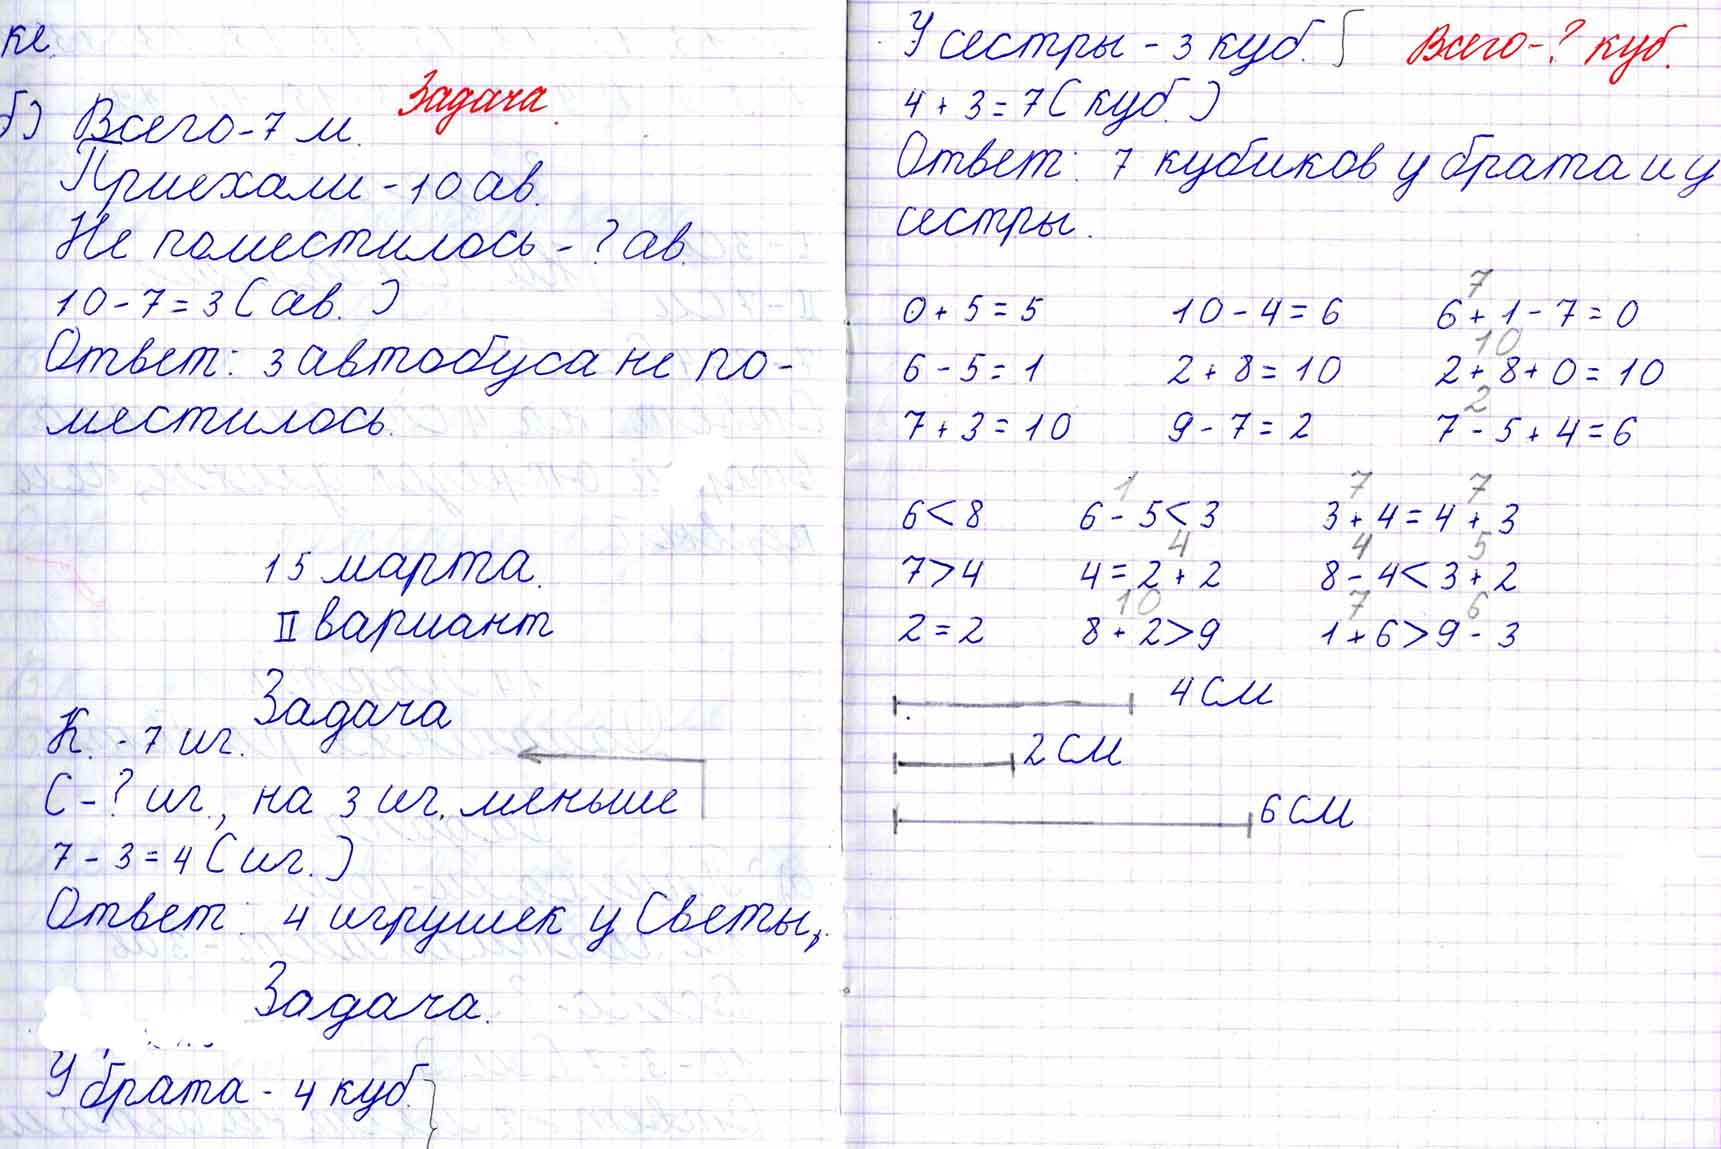 ке.
Задача.
б) Всего-7 м.
Приехали-10 ав.
Не поместилось-? ав.
10-7=3(ав.)
Ответ: 3 автобуса не по-
местилось.
15 марта.
II вариант
Задача
К. -7 иг.
С-? иг., на 3 иг. меньше
7-3=4(иг.)
Ответ: 4 игрушек у Светы.
Задача.
У брата-4 куб.
У сестры-3 куб. Всего-? куб.
4+3=7(куб.)
Ответ: 7 кубиков у брата и у
сестры.
7
0+5=5 10-4=6 6+1-7=0
10
6-5=1 2+8=10 2+8+0=10
2
7+3=10 9-7=2 7-5+4=6
1 7 7
6<8 6-5<3 3+4=4+3
4 4 5
7>4 4=2+2 8-4<3+2
10 7 6
2=2 8+2>9 1+6>9-3
4 см
2 см
6 см